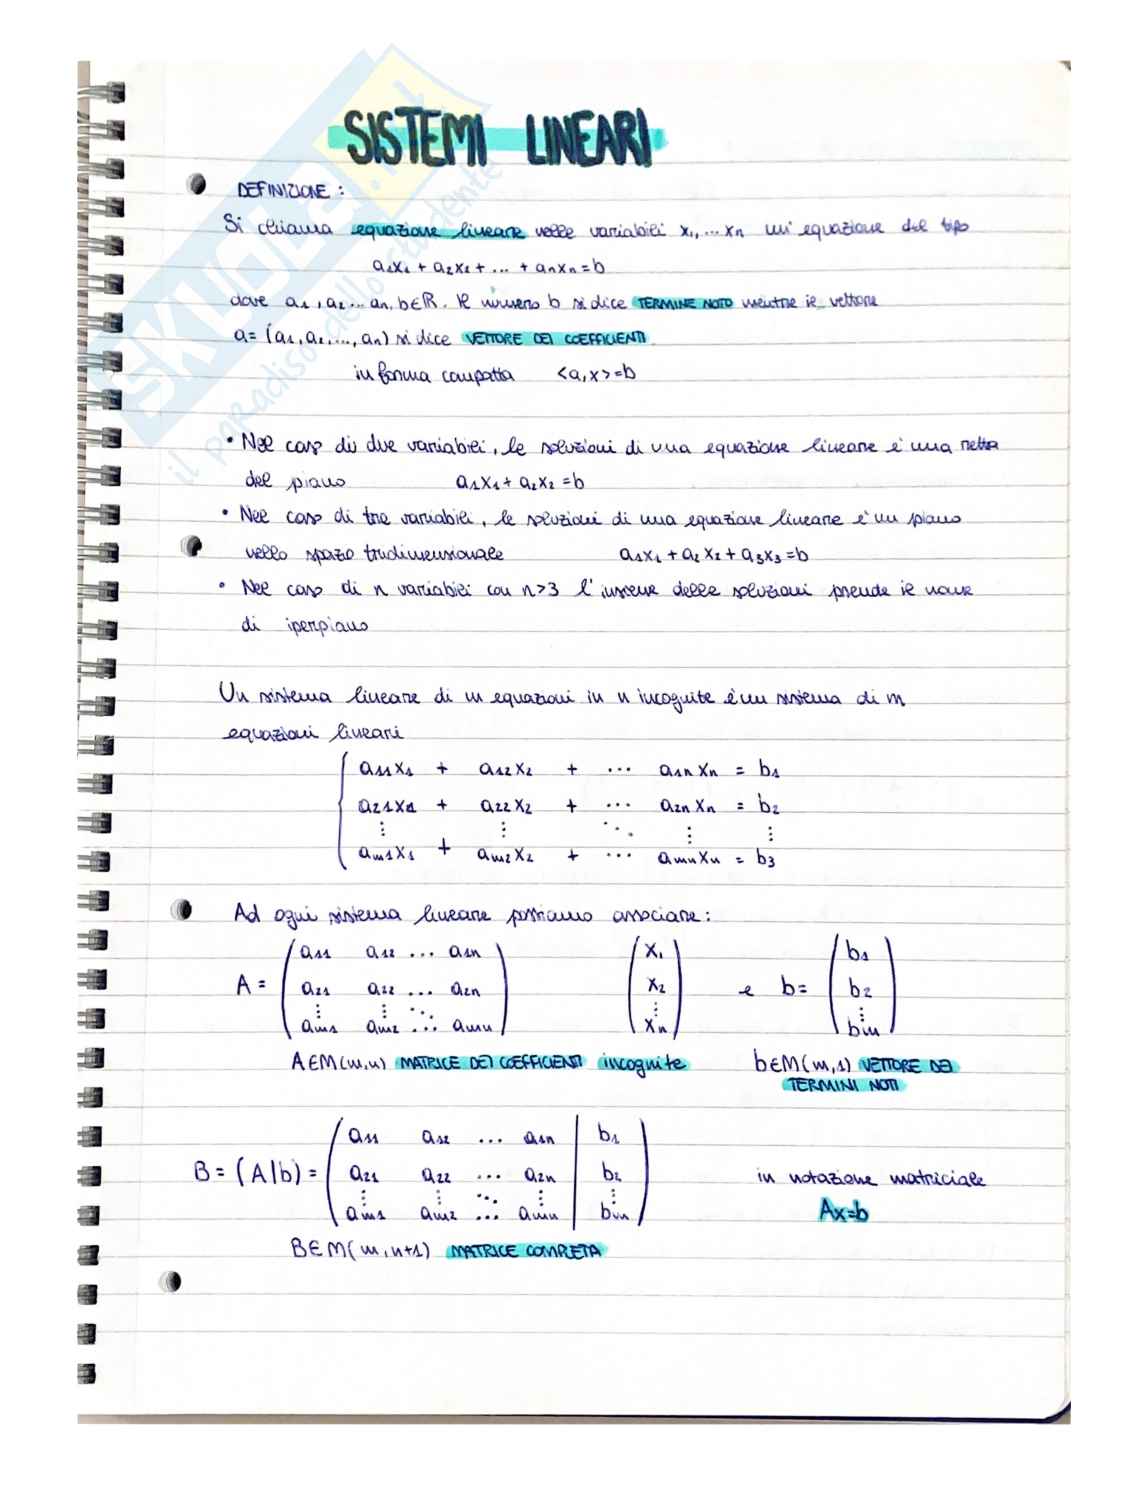 SISTEMI LINEARI
DEFINIZIONE :
Si chiama equazione lineare nelle variabili x₁, ... xn un' equazione del tipo
a₁x₁ + a₂x₂ + ... + anxn = b
dove a₁, a₂ ... an, b∈ℝ. Il numero b si dice TERMINE NOTO mentre il vettore
a = (a₁, a₂, ..., an) si dice VETTORE DEI COEFFICIENTI
in forma compatta <a,x> = b
• Nel caso di due variabili, le soluzioni di una equazione lineare è una retta
del piano a₁x₁ + a₂x₂ = b
• Nel caso di tre variabili, le soluzioni di una equazione lineare è un piano
nello spazio tridimensionale a₁x₁ + a₂x₂ + a₃x₃ = b
• Nel caso di n variabili con n>3 l'insieme delle soluzioni prende il nome
di iperpiano
Un sistema lineare di m equazioni in n incognite è un sistema di m
equazioni lineari
a₁₁x₁ + a₁₂x₂ + ... a₁nxn = b₁
a₂₁x₁ + a₂₂x₂ + ... a₂nxn = b₂
⋮ ⋮ ⋱ ⋮ ⋮
am₁x₁ + am₂x₂ + ... amnxn = b₃
Ad ogni sistema lineare possiamo associare:
a₁₁ a₁₂ ... a₁n x₁ b₁
A = a₂₁ a₂₂ ... a₂n x₂ e b = b₂
⋮ ⋮ ⋱ ⋮ ⋮
am₁ am₂ ... amn xn bm
A∈M(m,n) MATRICE DEI COEFFICIENTI incognite b∈M(m,1) VETTORE DEI
TERMINI NOTI
a₁₁ a₁₂ ... a₁n | b₁
B = (A|b) = a₂₁ a₂₂ ... a₂n | b₂ in notazione matriciale
⋮ ⋮ ⋱ ⋮ | ⋮
am₁ am₂ ... amn | bm Ax=b
B∈M(m,n+1) MATRICE COMPLETA
SKUOLA.it
il paradiso dello studente